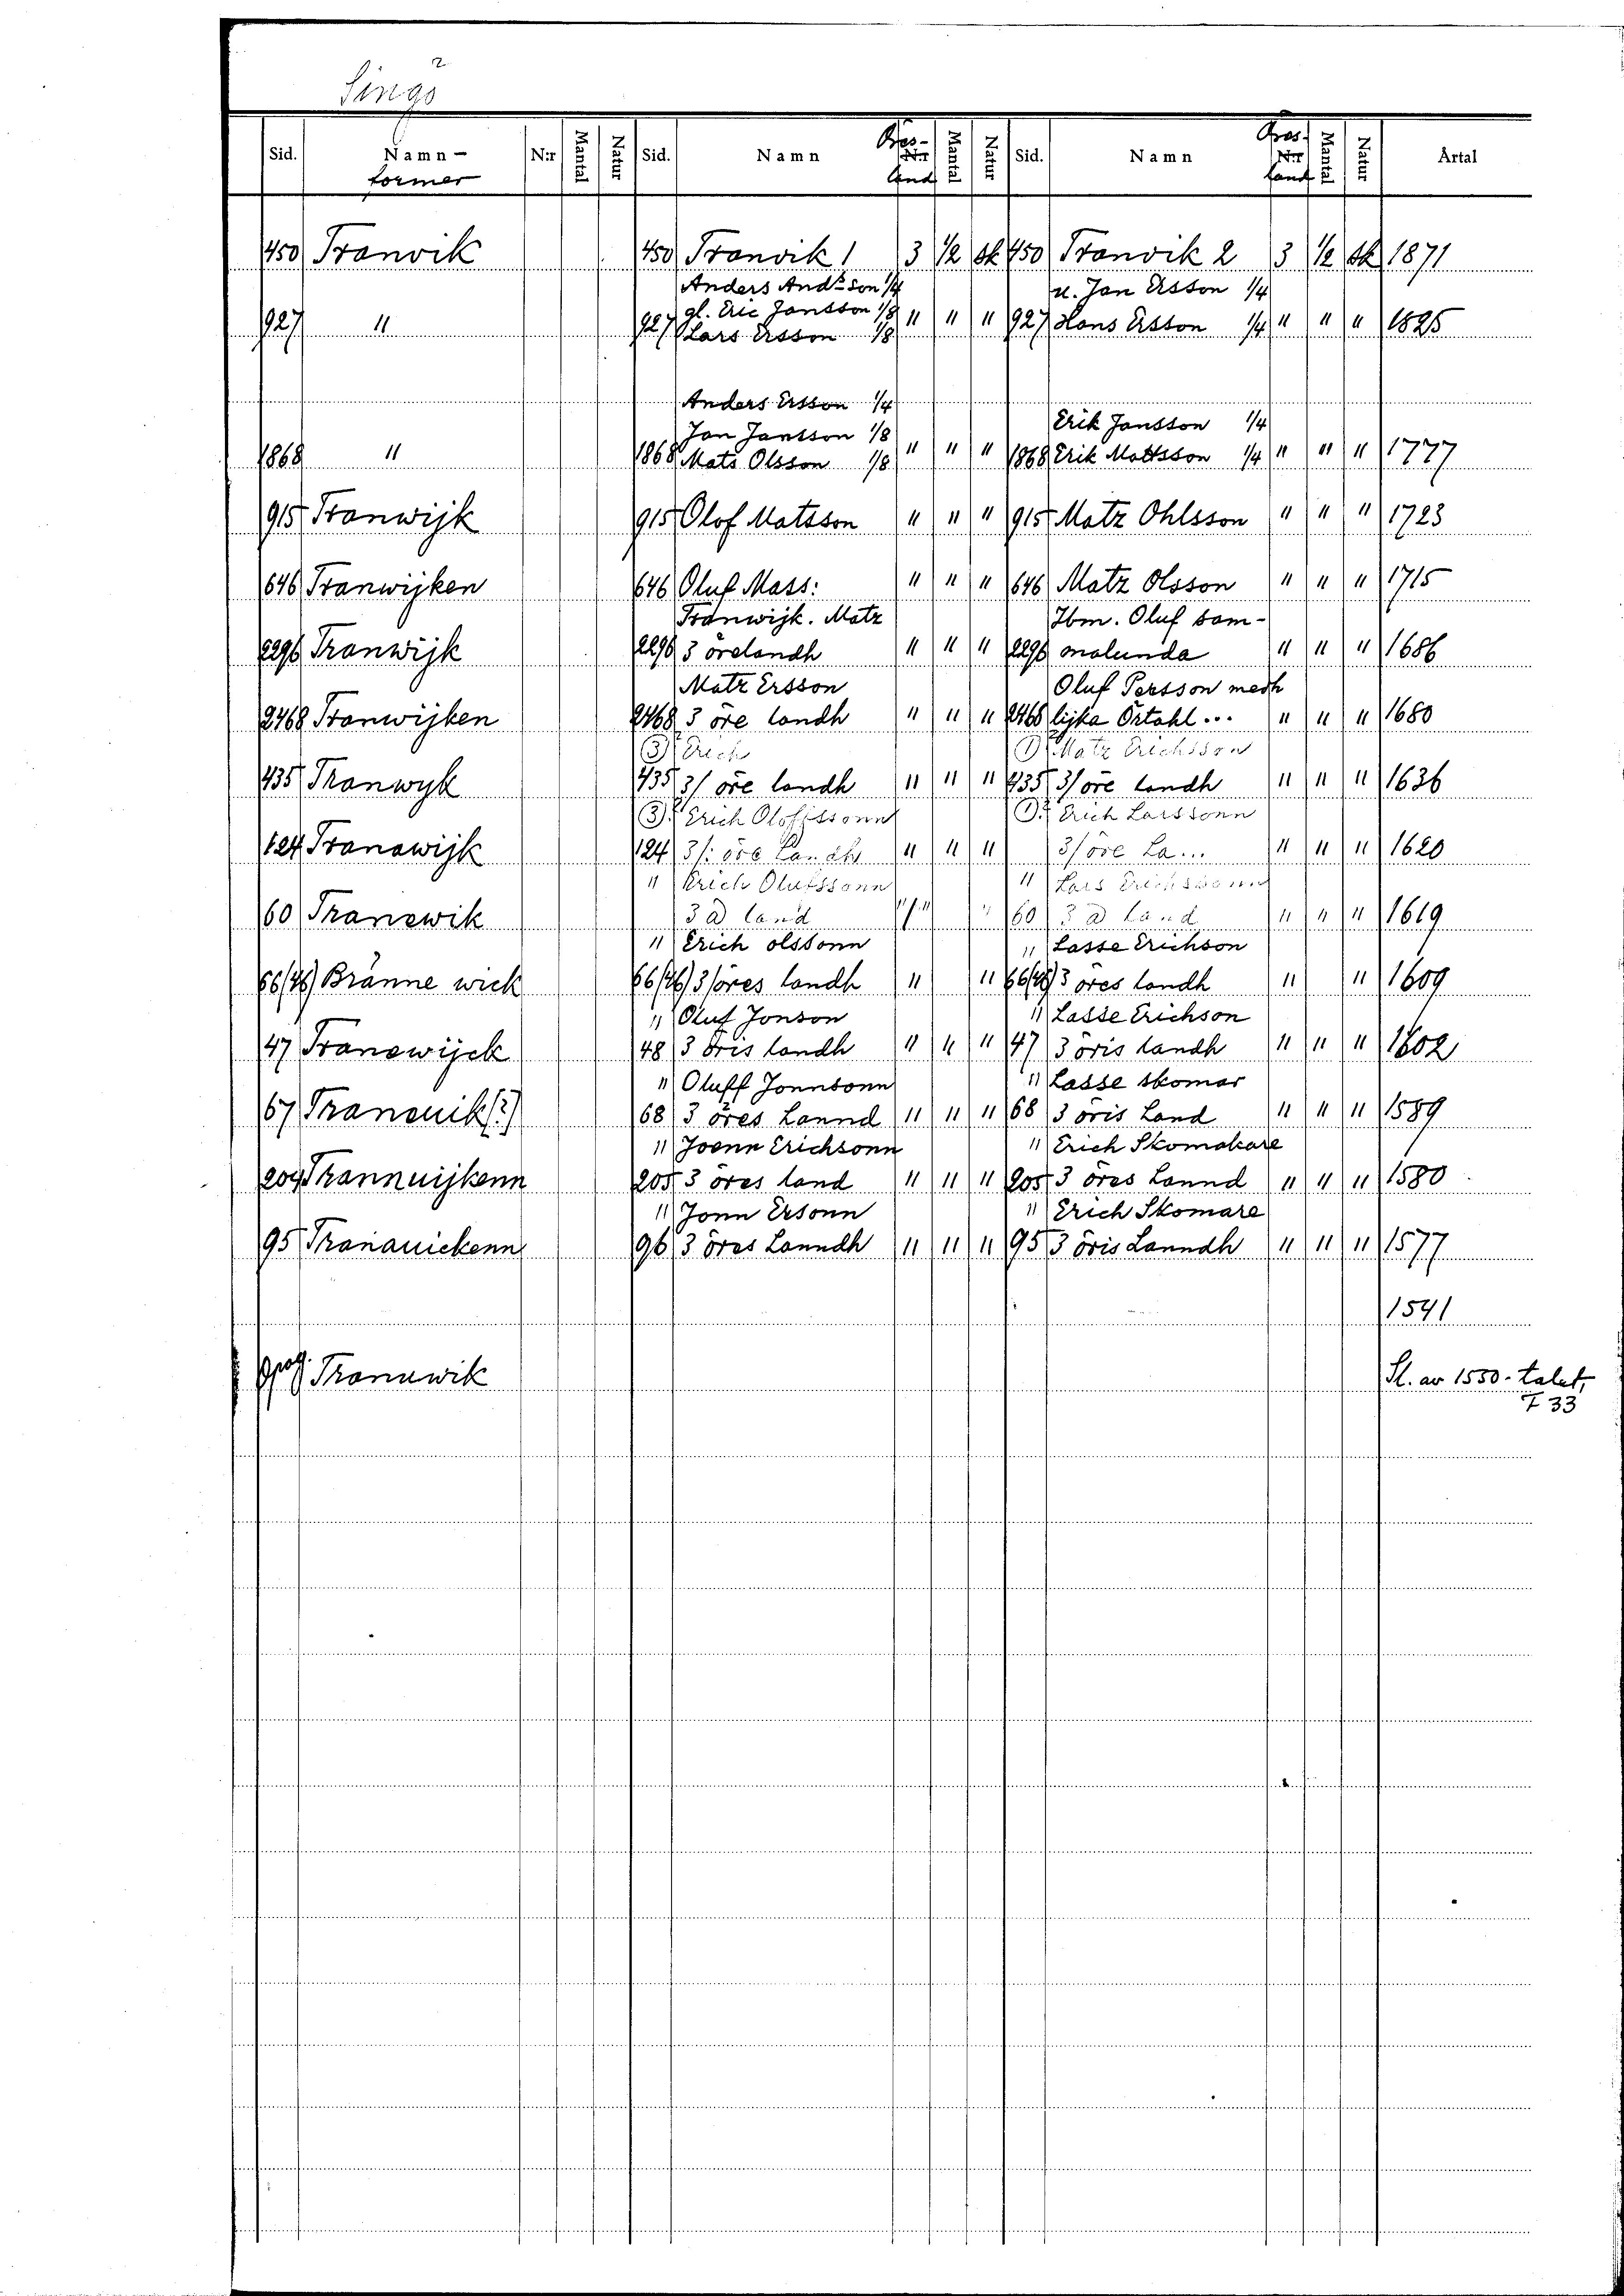 2
Singö
Sid. Namn- N:r Mantal Natur Sid. Namn Öres- N:r Mantal Natur Sid. Namn Öres- N:r Mantal Natur Årtal
former land land
450 Tranvik 450 Tranvik 1 3 1/2 sk 450 Tranvik 2 3 1/2 sk 1871
Anders And:s son 1/4 u. Jan Ersson 1/4
gl. Eric Jansson 1/8
927 " 927 Lars Ersson 1/8 " " " 927 Hans Ersson 1/4 " " " 1825
Anders Ersson 1/4
Jan Jansson 1/8 Erik Jansson 1/4
1868 " 1868 Mats Olsson 1/8 " " " 1868 Erik Mattsson 1/4 " " " 1777
915 Tranwijk 915 Olof Matsson " " " 915 Matz Ohlsson " " " 1723
646 Tranwijken 646 Oluf Mass: " " " 646 Matz Olsson " " " 1715
Tranwijk. Matz Ibm. Oluf sam-
2296 Tranwijk 2296 3 örelandh " " " 2296 malunda " " " 1686
Matz Ersson Oluf Persson medh
2468 Tranwijken 2468 3 öre landh " " " 2468 lijka Örtahl ... " " " 1680
(3) Erich Matz Erichsson
435 Tranwyk 435 3/ öre landh " " " 435 3/ öre landh " " " 1636
(3) Erich Oloffssonn Erich Larssonn
124 Tranawijk 124 3/: öre Landh " " " 3/ öre La... " " " 1620
" Erich Olufssonn " Lars Erichssonn
60 Tranewik 3 Ø land " " " 60 3 Ø land " " " 1619
" Erich olssonn " Lasse Erichson
66/46) Bränne wick 66/46) 3/öres landh " " 66/46) 3 öres landh " " 1609
" Oluf Jonson " Lasse Erichson
47 Tranewijck 48 3 öris landh " " " 47 3 öris landh " " " 1602
" Oluff Jonnsonn " Lasse skomar
67 Traneuik(?) 68 3 öres Lannd " " " 68 3 öris Land " " " 1589
" Joenn Erichsonn " Erich Skomakare
204 Trannuijkenn 205 3 öres land " " " 205 3 öres Lannd " " " 1580
" Jonn Ersonn " Erich Skomare
95 Tranauickenn 96 3 öres Lanndh " " " 95 3 öris Lanndh " " " 1577
1541
Tranawik Sl. av 1550-talet,
F 33